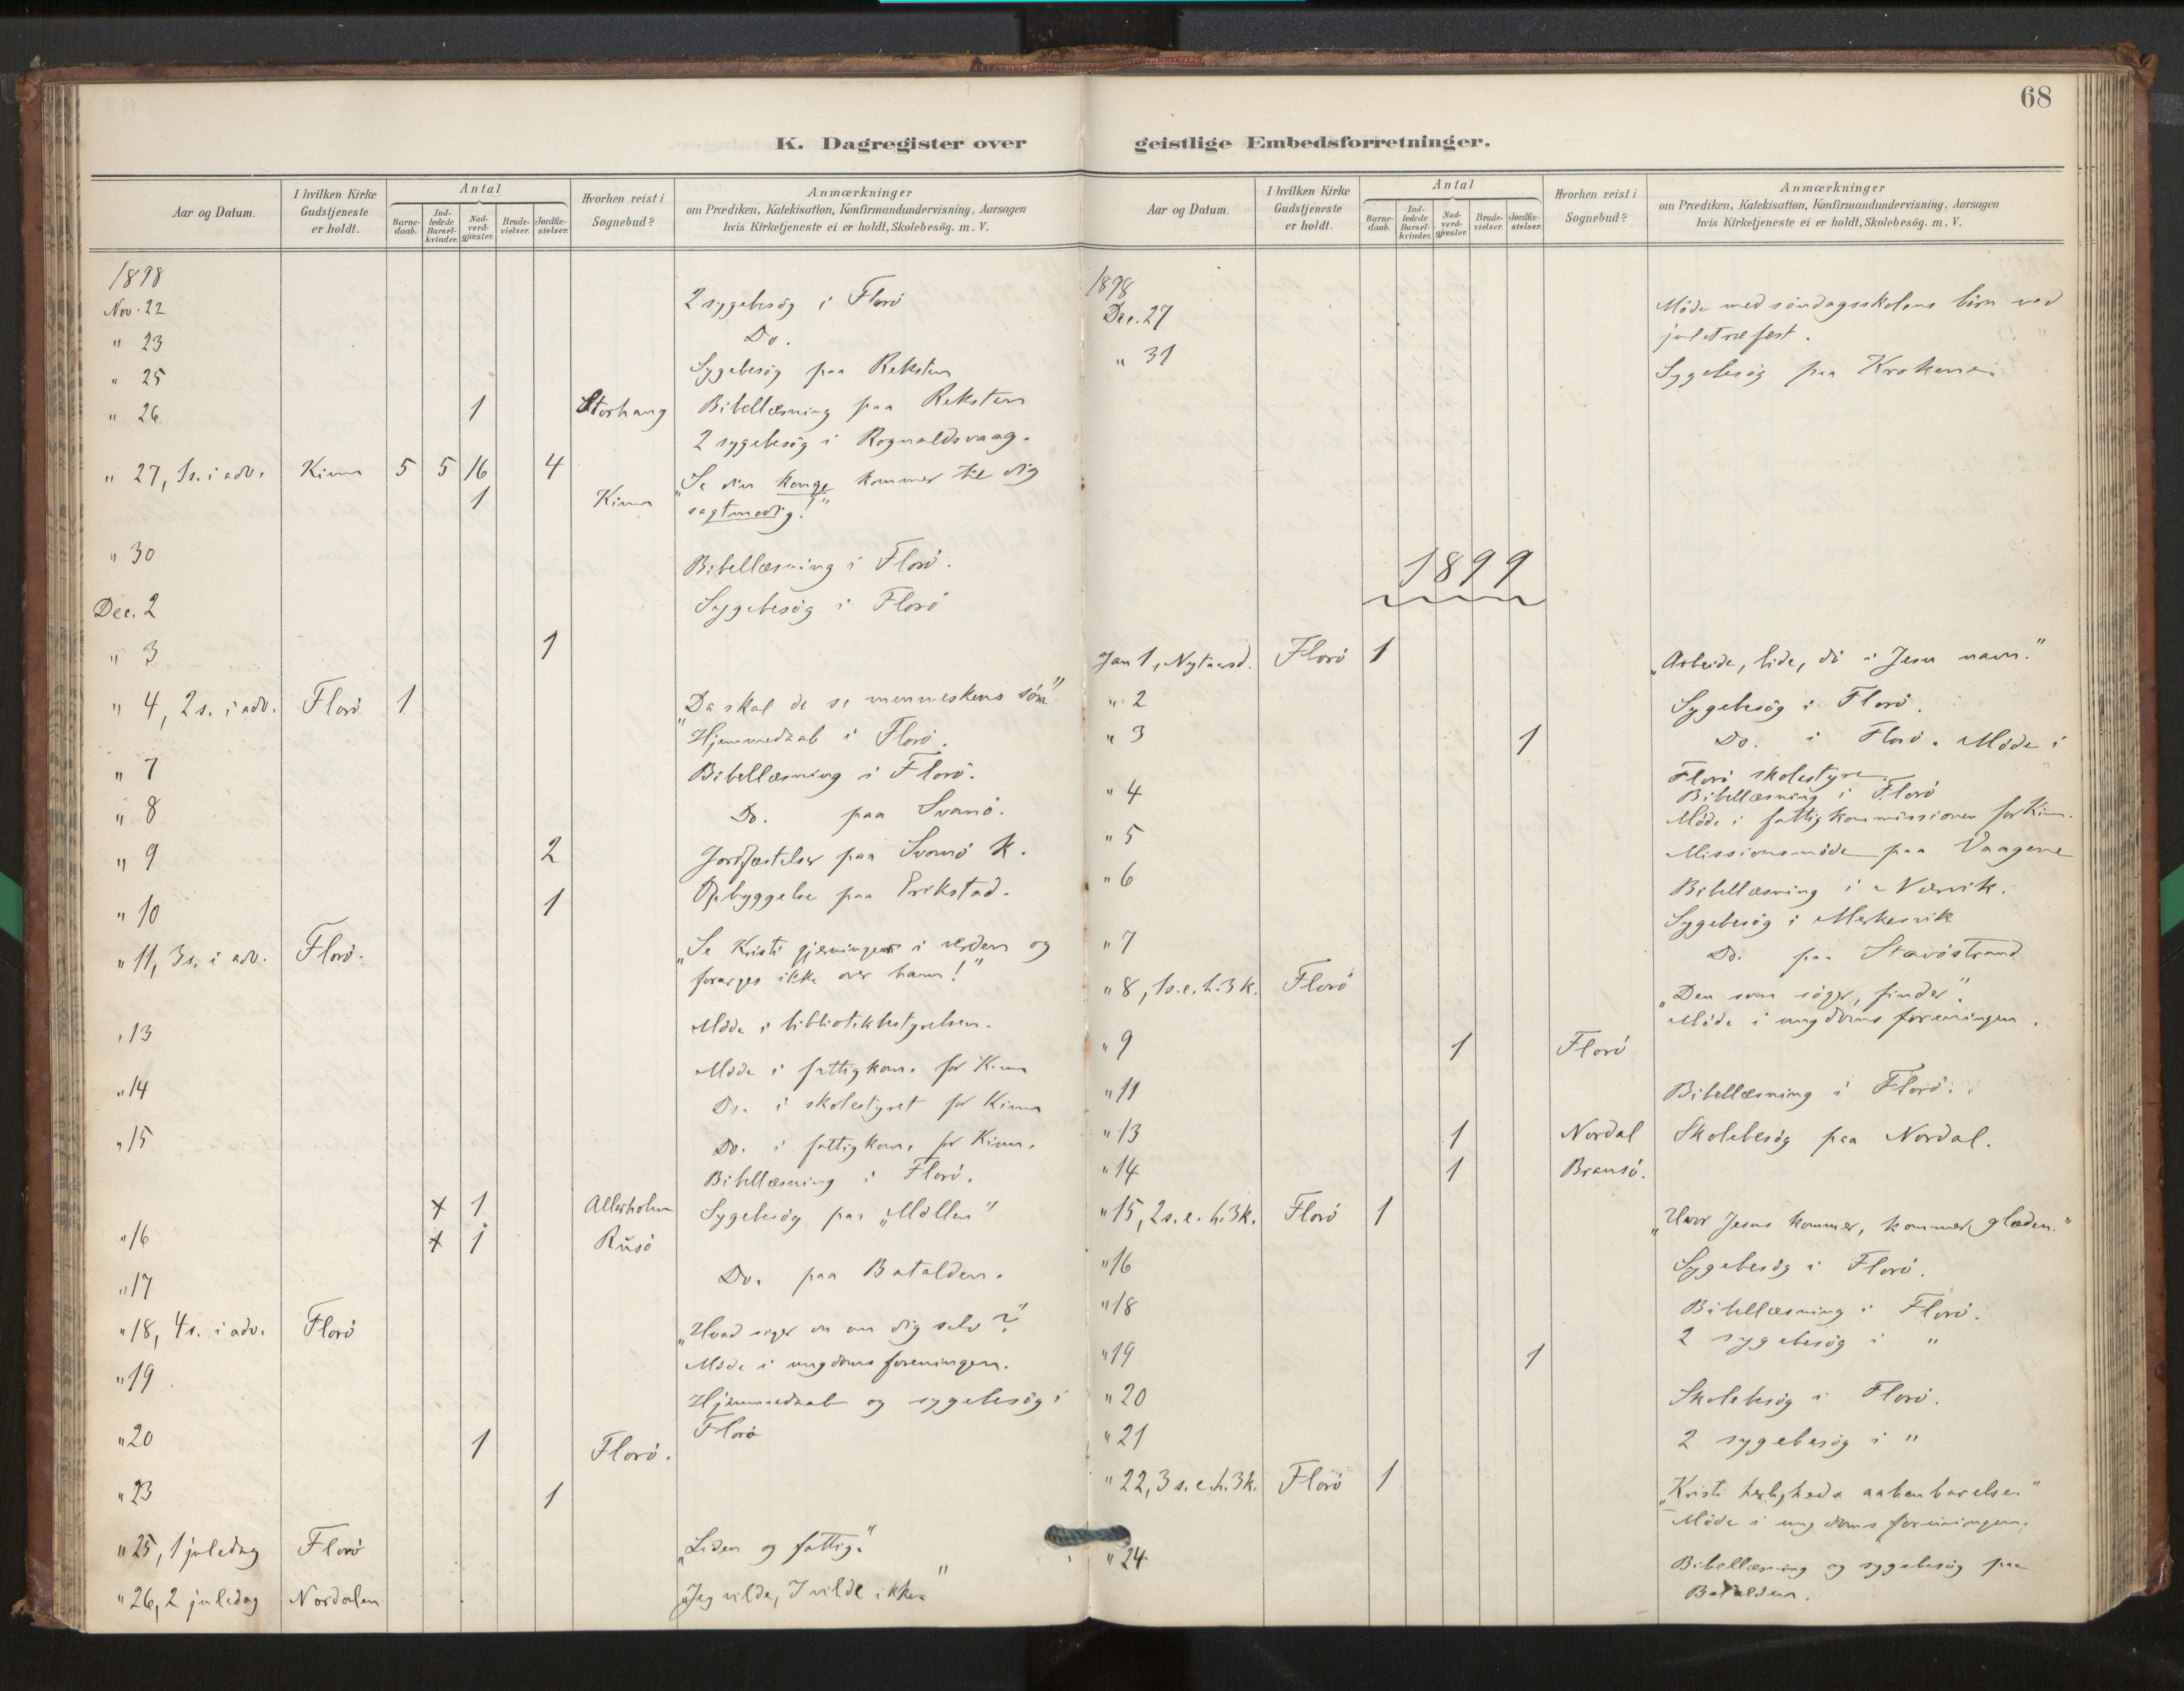 68
K. Dagregister over geistlige Embedsforretninger.
Aar og Datum. I hvilken Kirke Gudstjeneste er holdt. Antal Barnedaab. Indledede Barselkvinder. Nadverdgjæster. Brudevielser. Jordfæstelser. Hvorhen reist i Sognebud? Anmærkninger om Prædiken, Katekisation, Konfirmandundervisning, Aarsagen hvis Kirketjeneste ei er holdt, Skolebesög. m. V.
1898
Nov. 22 2 sygebesög i Florö
" 23 Do.
" 25 Sygebesög paa Reksten
" 26 1 Storhaug Bibellæsning paa Reksten
2 sygebesög i Rognaldsvaag.
" 27, 1s. i adv. Kinn 5 5 16 4 „Se din konge kommer til dig
1 Kinn sagtmodig!"
" 30 Bibellæsning i Florö.
Dec. 2 Sygebesög i Florö
" 3 1
" 4, 2 s. i adv. Florö 1 „Da skal de se menneskens sön"
Hjemmedaab i Florö.
" 7 Bibellæsning i Florö.
" 8 Do. paa Svanö.
" 9 2 Jordfæstelser paa Svanö K.
" 10 1 Opbyggelse paa Erikstad.
" 11, 3 s. i adv. Florö. „Se Kristi gjerninger i verden og
forarges ikke over ham!"
" 13 Möde i bibliotekbestyrelsen.
Möde i fattigkom. for Kinn
" 14 Do. i skolestyret for Kinn
" 15 Do. i fattigkom. for Kinn.
Bibellæsning i Florö.
x 1 Allerholm Sygebesög paa „Möllen"
" 16 x 1 Rusö
" 17 Do. paa Batalden.
" 18, 4 s. i adv. Florö „Hvad siger du om dig selv?"
Möde i ungdomsforeningen.
" 19 Hjemmedaab og sygebesög i
Florö
" 20 1 Florö.
" 23 1
" 25, 1 juledag Florö „Liden og fattig."
" 26, 2 juledag Nordalen „Jeg vilde, I vilde ikke"
Aar og Datum. I hvilken Kirke Gudstjeneste er holdt. Antal Barnedaab. Indledede Barselkvinder. Nadverdgjæster. Brudevielser. Jordfæstelser. Hvorhen reist i Sognebud? Anmærkninger om Prædiken, Katekisation, Konfirmandundervisning, Aarsagen hvis Kirketjeneste ei er holdt, Skolebesög. m. V.
1898
Dec. 27 Möde med söndagsskolens börn ved
juletræfest.
" 31 Sygebesög paa
1899
Jan 1, Nytaarsd. Florö 1 „Arbeide, lide, dö i Jesu navn."
" 2 Sygebesög i Florö.
" 3 1 Do. i Florö. Möde i
Florö skolestyre.
" 4 Bibellæsning i Florö
Möde i fattigkommissionen for Kinn.
" 5 Missionsmöde paa Vaagene
" 6 Bibellæsning i
Sygebesög i
" 7 Do. paa Stavöstrand
" 8, 1 s. e. h. 3 k. Florö „Den som söger, finder".
Möde i ungdomsforeningen.
" 9 1 Florö
" 11 Bibellæsning i Florö.
" 13 1 Nordal Skolebesög paa Nordal.
" 14 1 Bransö.
" 15, 2 s. e. h. 3 k. Florö 1 „Hvor Jesus kommer, kommer glæden."
" 16 Sygebesög i Florö.
" 18 Bibellæsning i Florö.
2 sygebesög i "
" 19 1
" 20 Skolebesög i Florö.
" 21 2 sygebesög i "
" 22, 3 s. e. h. 3 k. Florö 1 „Kristi herligheds aabenbarelse."
Möde i ungdomsforeningen.
" 24 Bibellæsning og sygebesög paa
Batalden.